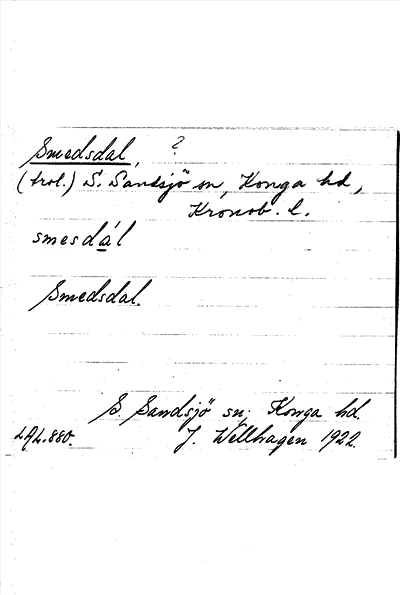 Smedsdal, ?
(trol.) S. Sandsjö sn, Konga hd,
Kronob. l.
smesdál
Smedsdal.
S. Sandsjö sn, Konga hd.
LAL. 880. J. Wellhagen 1922.